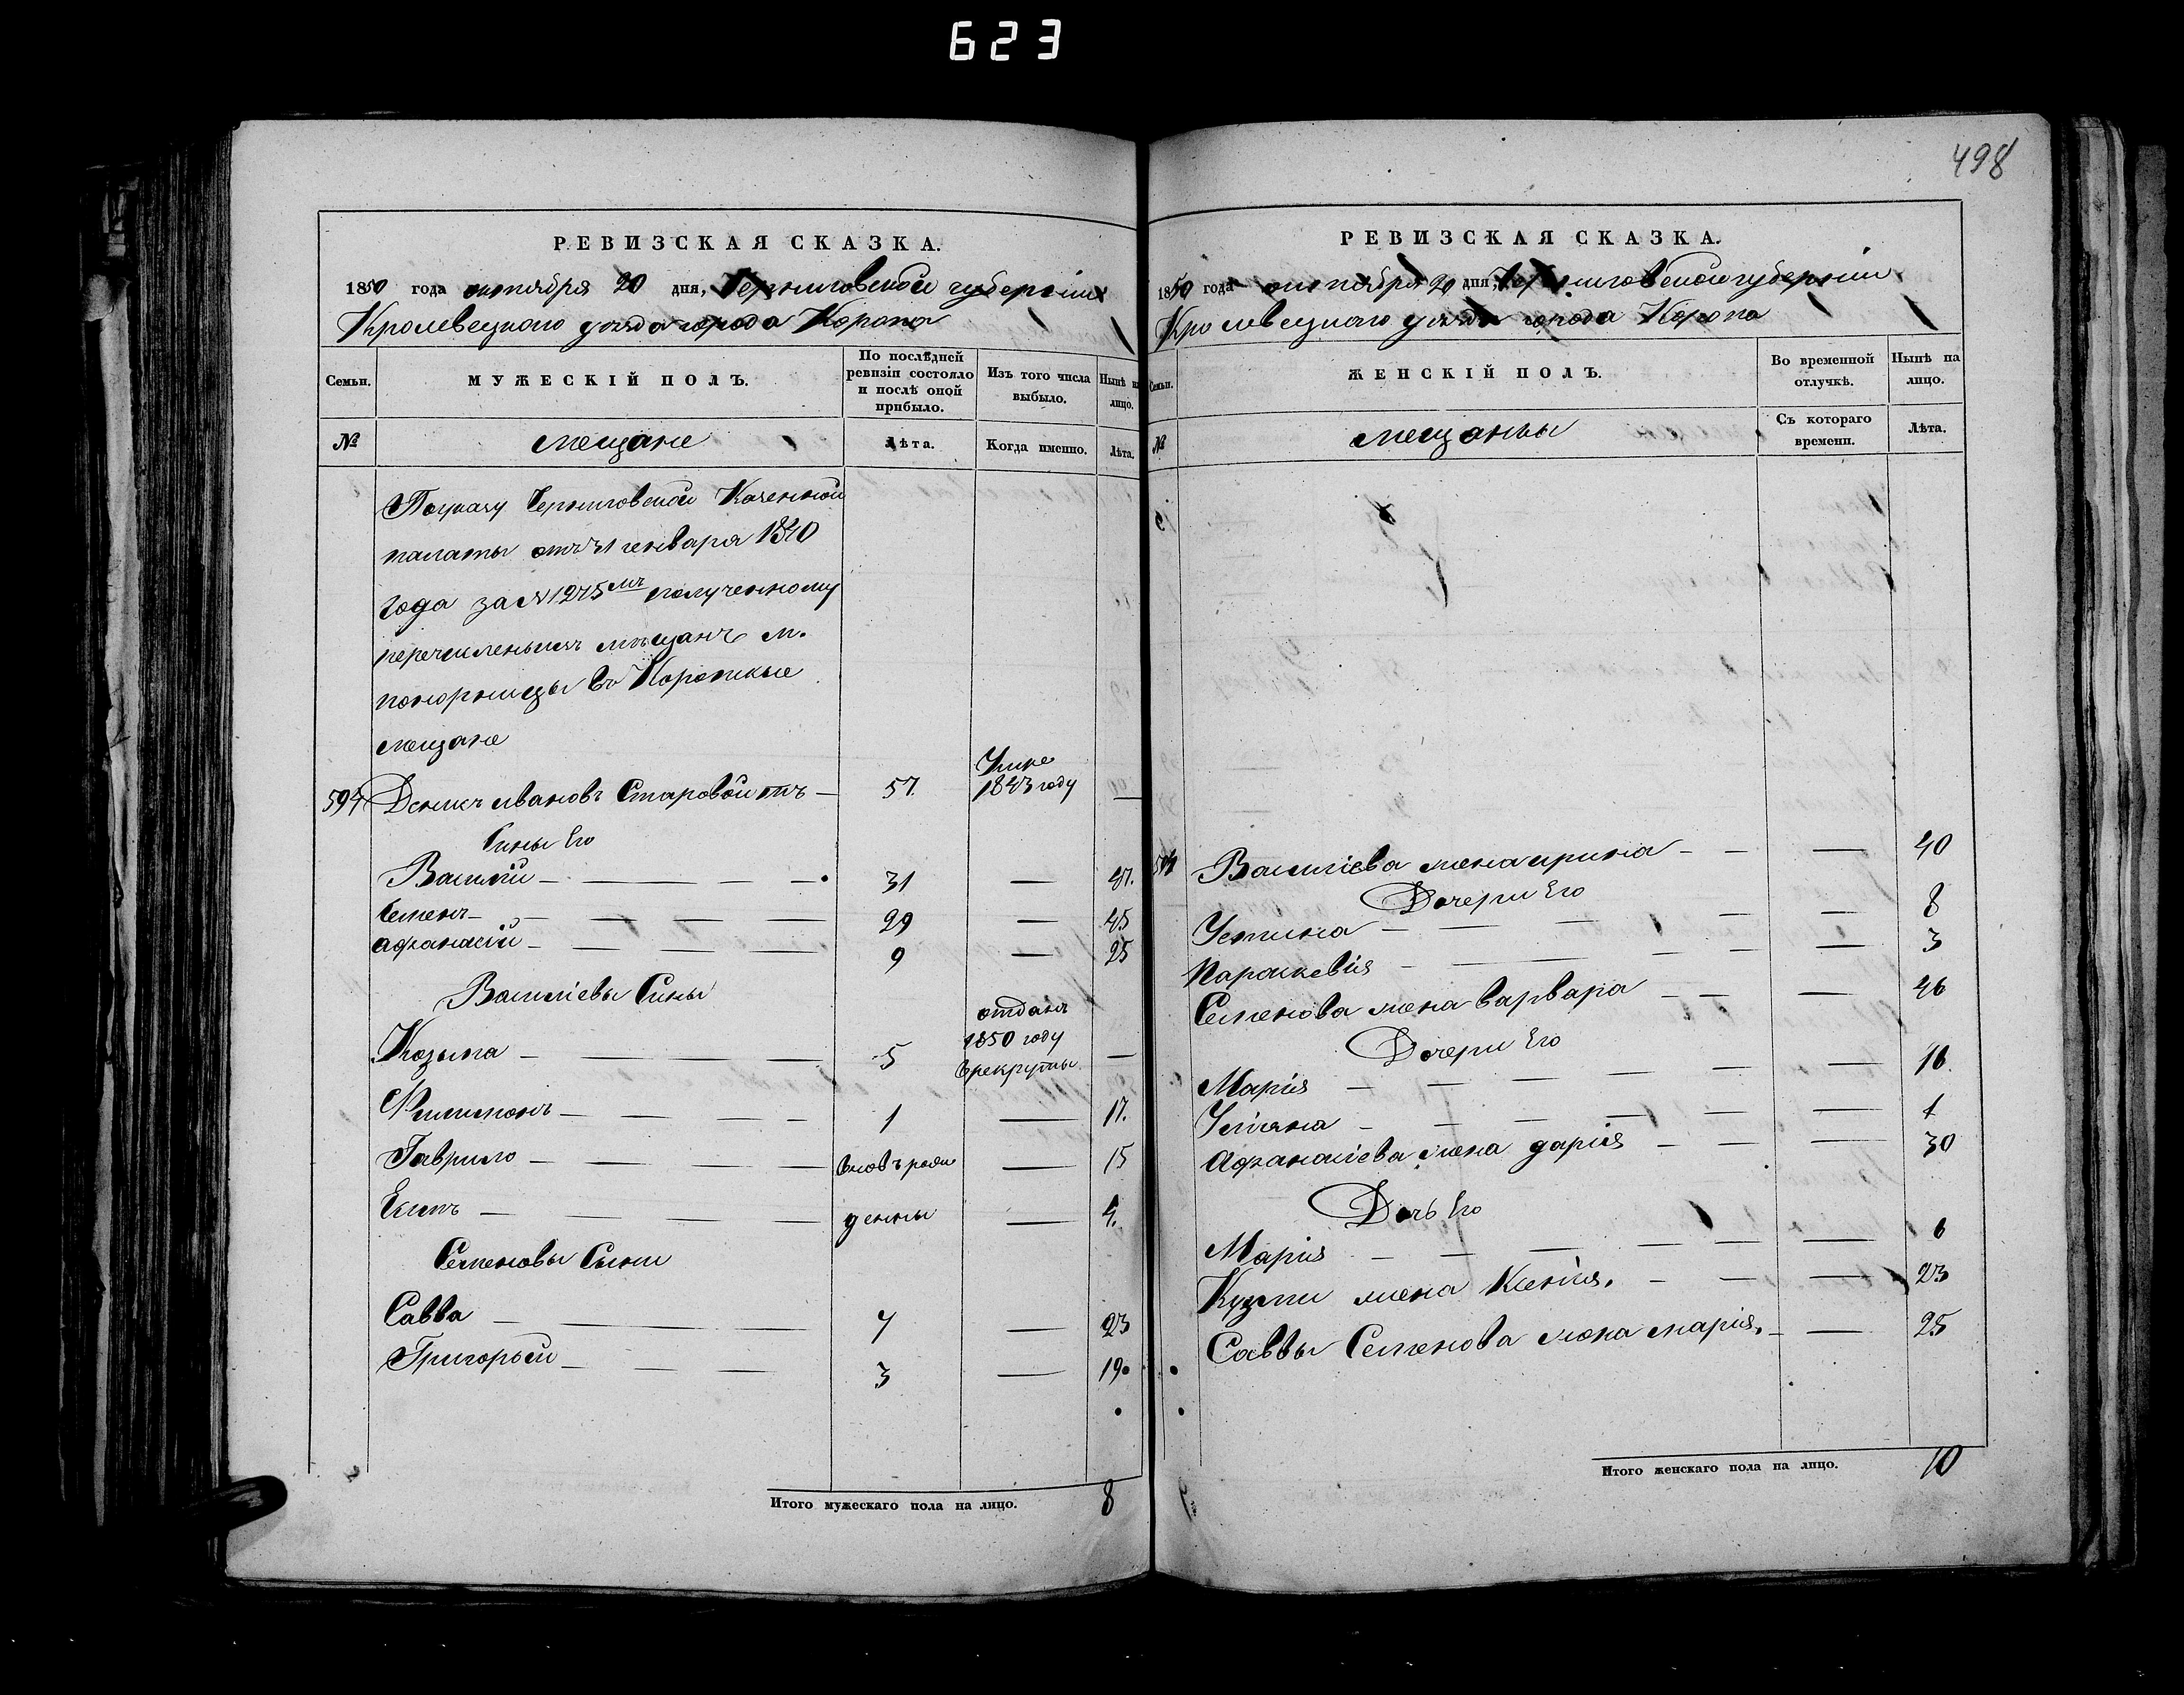 623
498
РЕВИЗСКАЯ СКАЗКА.
1850 года октября 20 дня, Черниговской губернiи
Кролевецкого уезда города Коропа
Семьи.
МУЖЕСКІЙ ПОЛЪ.
По послѣдней ревизіи состояло и послѣ оной прибыло.
Изъ того числа выбыло.
Нынѣ на лицо.
№
мещане
Лѣта.
Когда именно.
Лѣта.
По указу Черниговской Казенной
палаты отъ 31 генваря 1840
года за № 1275мъ полученному
перечисленымъ мещанъ м.
понорницы въ Коропские
мещане
594 Денисъ Ивановъ Старовойтъ — 57. Умре 1843 году —
Сины Его
Василий — 31 — 47.
Семенъ — 29 — 45
Афанасiй — 9 — 25
Василiевы Сины
Козьма — 5 отданъ 1850 году в рекруты —
Филимонъ — 1 — 17.
Гаврило — вновь рож — 15
Екимъ — денны — 4.
Семеновы Сыни
Савва — 7 — 23
Григорьй — 3 — 19
Итого мужескаго пола на лицо. 8
РЕВИЗСКАЯ СКАЗКА.
1850 года октября 20 дня, Черниговской губернiи
Кролевецкого уезда города Коропа
Семьи.
ЖЕНСКІЙ ПОЛЪ.
Во временной отлучкѣ.
Нынѣ на лицо.
№
мещанкы
Съ котораго времени.
Лѣта.
594 Василiева жена ирина — — 40
Дочери Его
Устина — — 8
Параскевiя — — 3
Семенова жена варвара — — 46
Дочери Его
Марiя — — 16.
Улiяна — — 1
Афанасiева жена дарiя — — 30
Дочь Его
Марiя — — 6
Кузми жена Ксенiя. — — 23
Саввы Семенова жена марiя. — — 25
Итого женскаго пола на лицо. 10